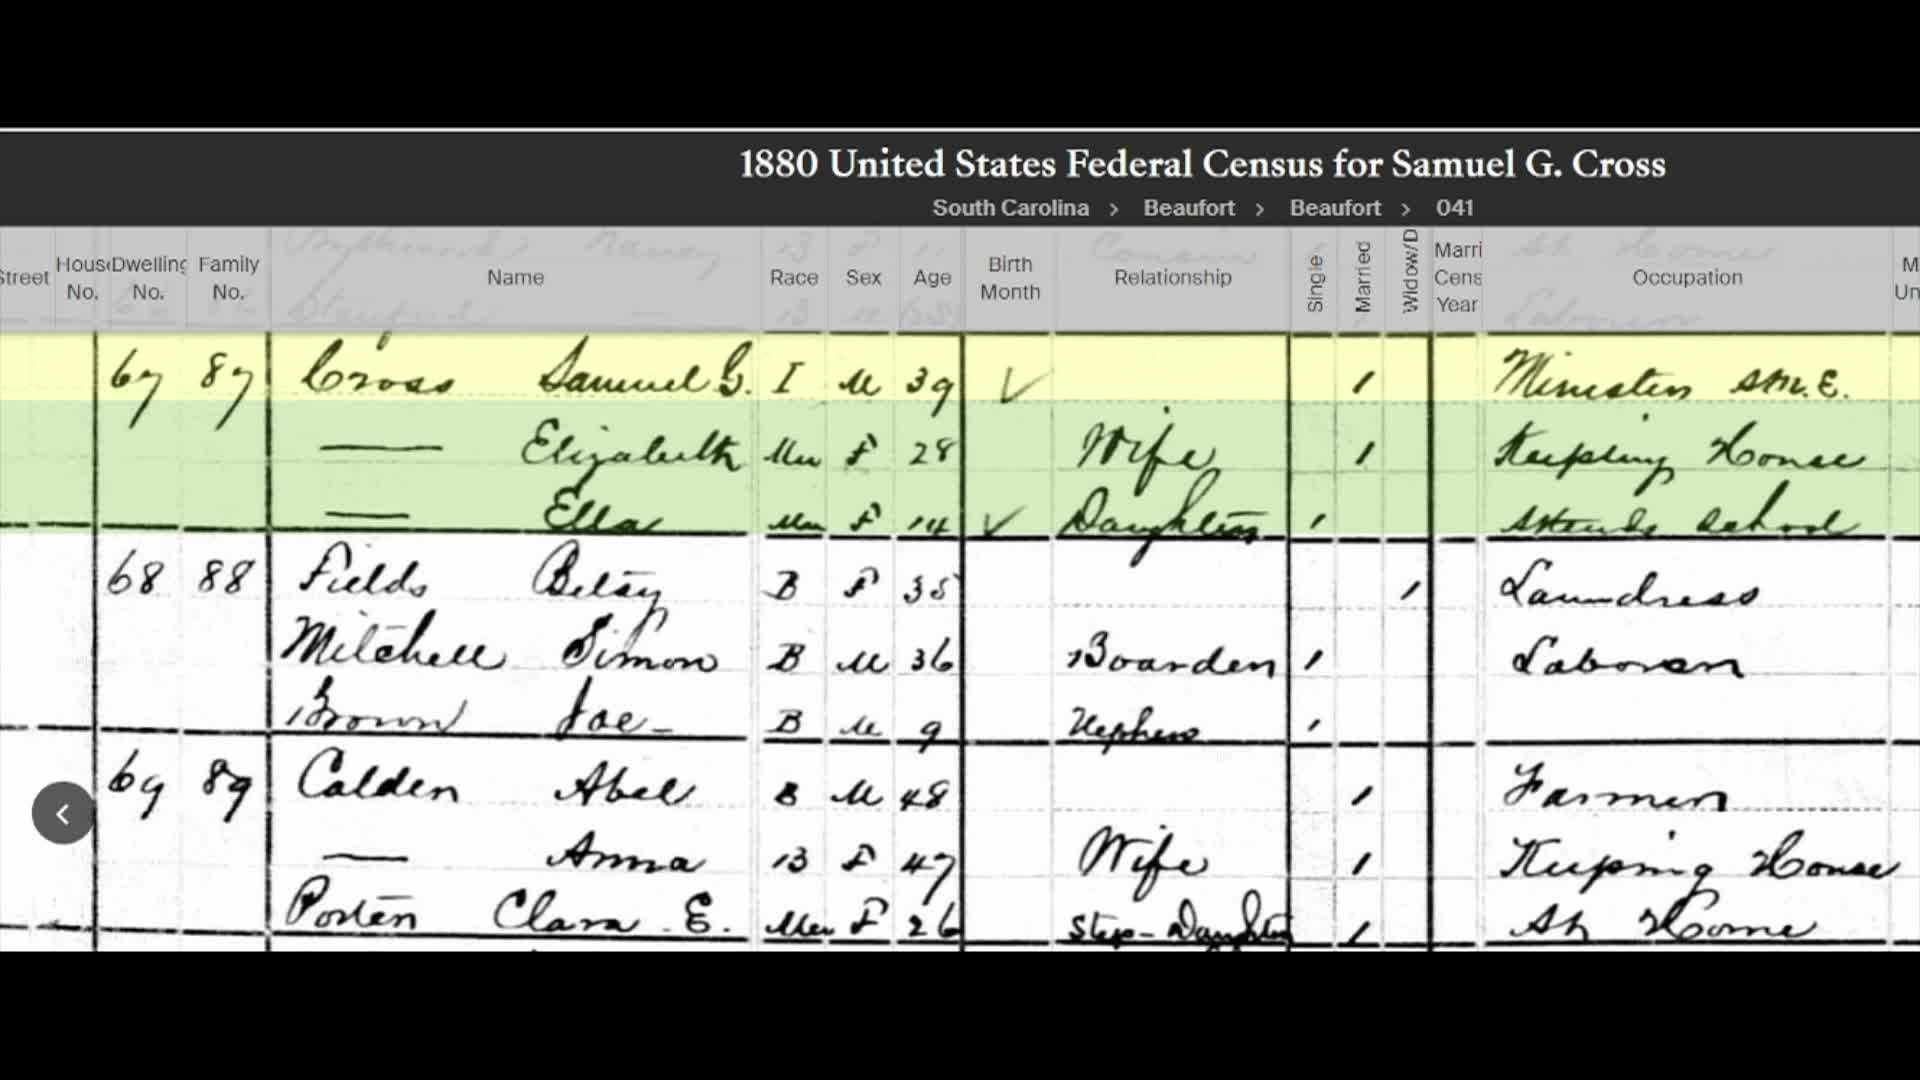 1880 United States Federal Census for Samuel G. Cross
South Carolina > Beaufort > Beaufort > 041
Street House No. Dwelling No. Family No. Name Race Sex Age Birth Month Relationship Single Married Widow/D Marri Cens Year Occupation M Un
67 87 Cross Samuel G. I M 39 1 Minister A.M.E.
— Elizabeth Mu F 28 Wife 1 Keeping House
— Ella Mu F 14 Daughter 1 Attends School
68 88 Fields Betsy B F 35 1 Laundress
Mitchell Simon B M 36 Boarder 1 Laborer
Brown Joe B M 9 Nephew 1
69 89 Calder Abel B M 48 1 Farmer
— Anna B F 47 Wife 1 Keeping House
Porter Clara E. Mu F 26 Step-Daughter 1 At Home